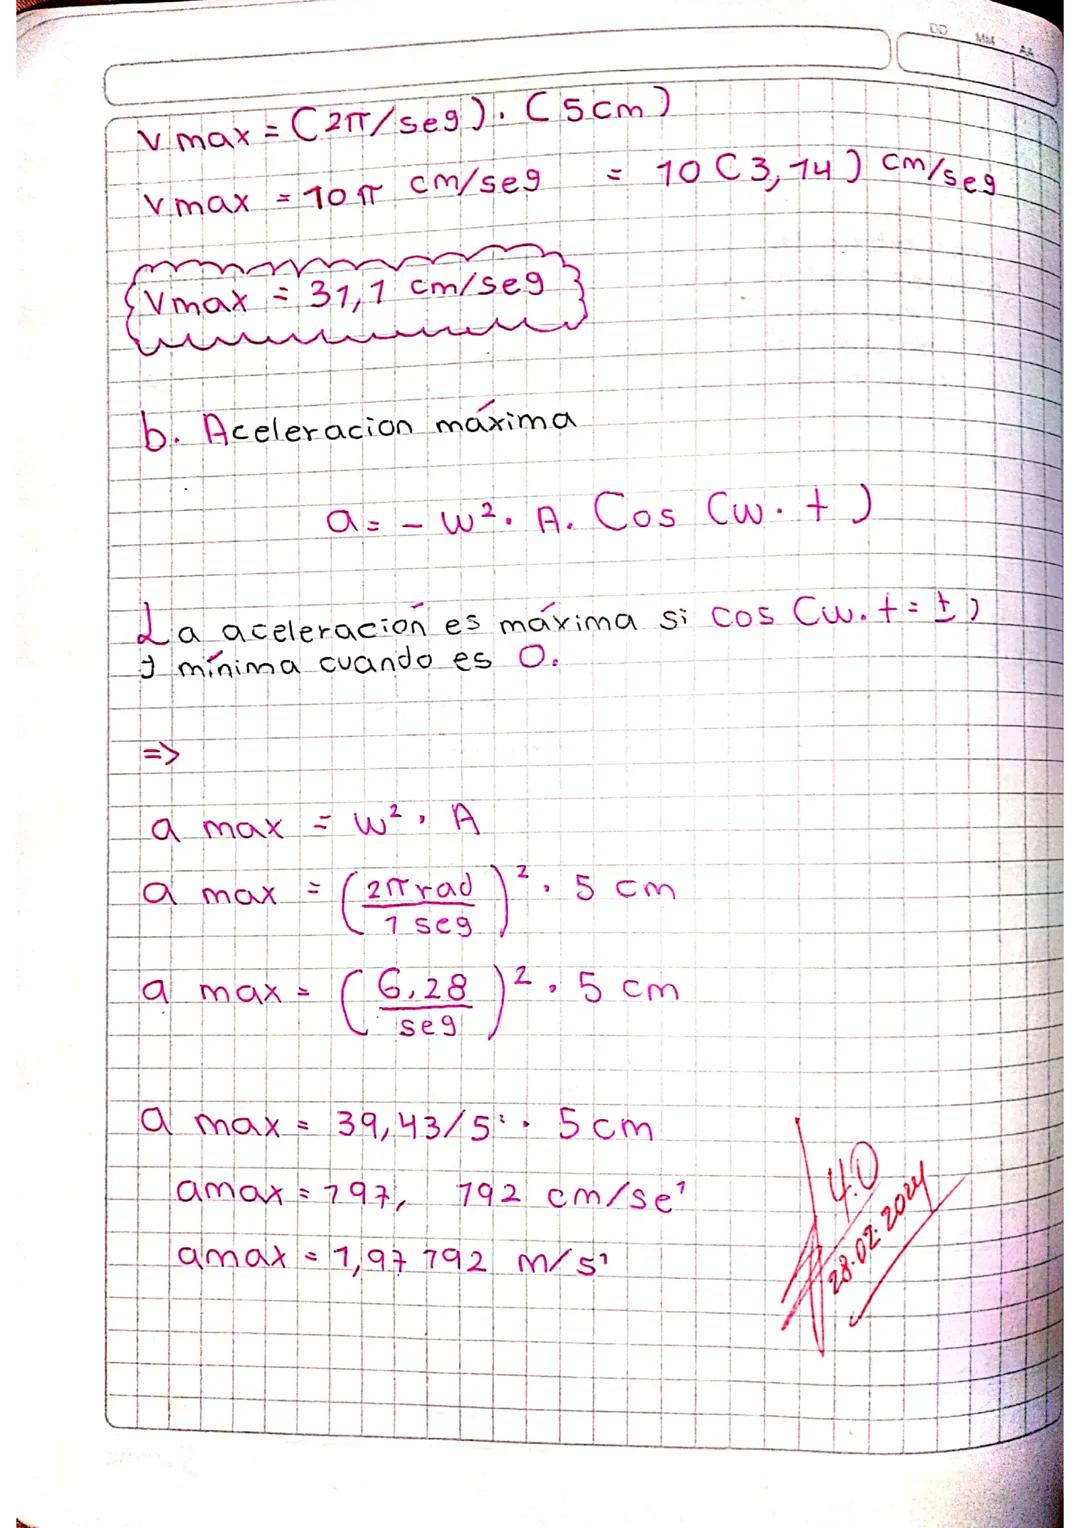 DD MM AA
Vmax = (2π/seg). (5cm)
Vmax = 10π cm/seg = 10 (3,14) cm/seg
Vmax = 31,1 cm/seg
b. Aceleracion máxima
a = - w². A. Cos (w. t)
La aceleración es máxima si cos (w. t = ±)
y mínima cuando es 0.
=>
a max = w². A
a max = (2π rad / 1 seg)². 5 cm
a max = (6,28 / seg)². 5 cm
a max = 39,43/s². 5 cm
amax = 197, 192 cm/se²
amax = 1,97 192 m/s²
4.0
28.02.2024